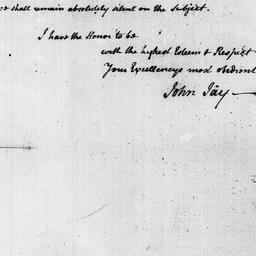 we shall remain absolutely silent on the Subject.
I have the Honor to be
with the highest Esteem & Respect
Your Excellency's most obedient
John Jay